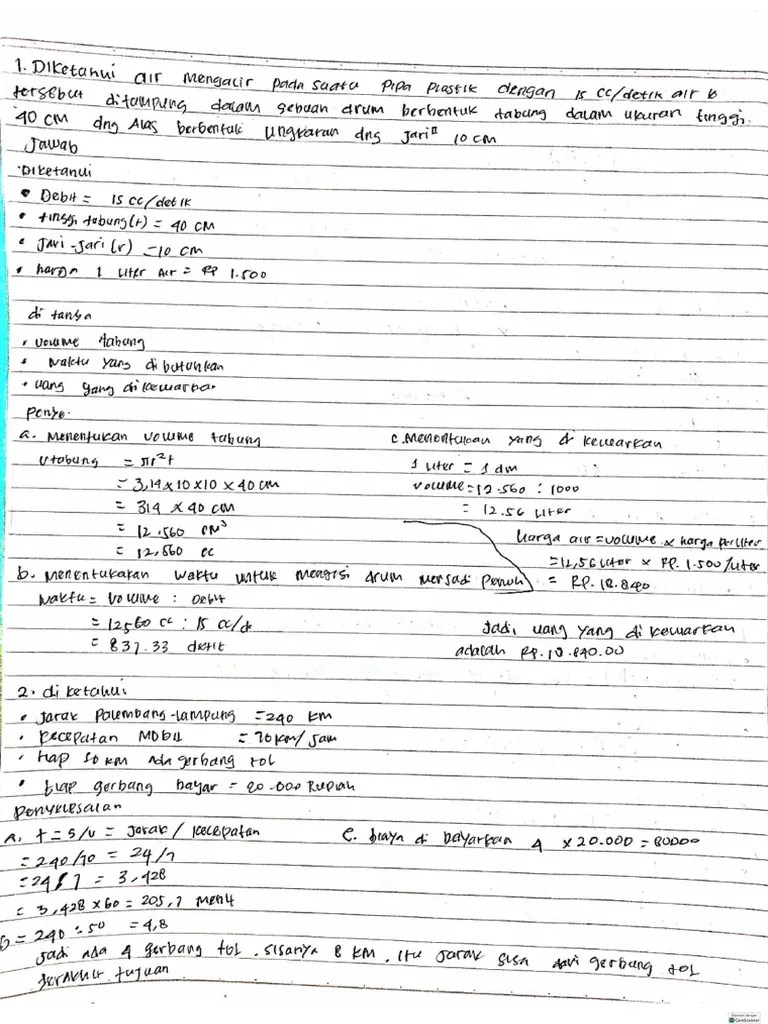 1. Diketahui air mengalir pada suatu pipa plastik dengan 15 cc/detik air
tersebut ditampung dalam sebuah drum berbentuk tabung dalam ukuran tinggi.
40 cm dng Alas berbentuk lingkaran dng jari" 10 cm
Jawab
Diketahui
• Debit = 15 cc/detik
• tinggi tabung (t) = 40 cm
• Jari-jari (r) = 10 cm
• harga 1 liter Air = RP 1.500
di tanya
• volume tabung
• waktu yang dibutuhkan
• uang yang dikeluarka.
Penye.
a. Menentukan volume tabung
Vtabung = πr²t
= 3,14 x 10 x 10 x 40 cm
= 314 x 40 cm
= 12.560 cm³
= 12,560 cc
b. Menentukan waktu untuk mengisi drum menjadi penuh
waktu = volume : Debit
= 12560 cc : 15 cc/d
= 837.33 detik
c. Menentukan yang di keluarkan
1 liter = 1 dm
volume = 12.560 : 1000
= 12.56 liter
Harga air = volume x harga perliter
= 12,56 liter x RP. 1.500/liter
= RP. 18.840
Jadi, uang yang di keluarkan
adalah RP. 18.840.00
2. diketahui
• Jarak Palembang-lampung = 240 km
• kecepatan Mobil = 70 km/jam
• tiap 50 km ada gerbang tol
• tiap gerbang bayar = 20.000 Rupiah
penyelesaian
a. t = s/v = Jarak / kecepatan
= 240/70 = 24/7
= 24/7 = 3,428
= 3,428 x 60 = 205,7 menit
b = 240 : 50 = 4,8
Jadi ada 4 gerbang tol. sisanya 8 km. itu Jarak sisa dari gerbang tol
terakhir tujuan
c. biaya di bayarkan 4 x 20.000 = 80000
CamScanner